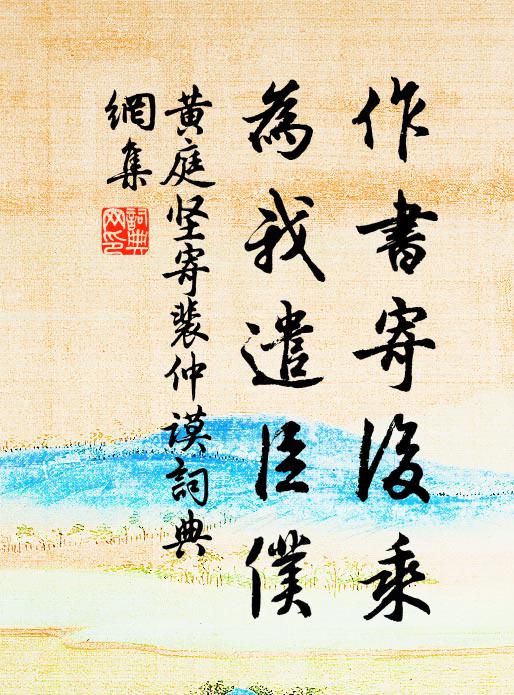 作書寄後乘
為我遣臣僕
黄庭坚寄裴仲謨詞典
網集
詞典網印